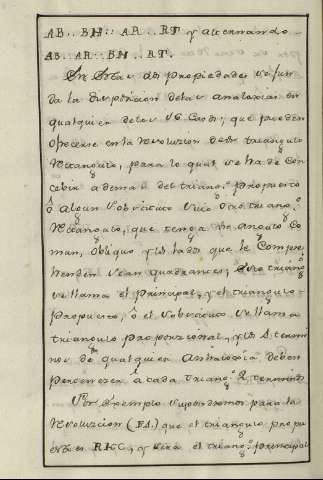 AB.. BH:: AR.. RT y alternando
AB.. AR:: BH.. RT.
En estas dos propiedades se fun
da la disposicion de las analogias en
qualquiera de los 16 Casos; que pueden
ofrecerse en la resolucion de un triangulo
Rectangulo, para lo qual se ha de con
cebir ademas del triang.º propuesto
ô algun subsidiario suio otro triang.º
Rectangulo, que tenga un angulo Co
mun, obliquo y los lados que le Compre
henden sean quadrantes; este triang.º
se llama el principal, y el triangulo
propuesto, ô el subsidiario se llama
triangulo proporcional, y los 4. termi
nos de qualquiera Analogia deben
pertenecer â cada triang.º 2 terminos
Por Exemplo supondremos para la
resolucion que el triangulo propu
esto es RKC, y sera el triang.º principal